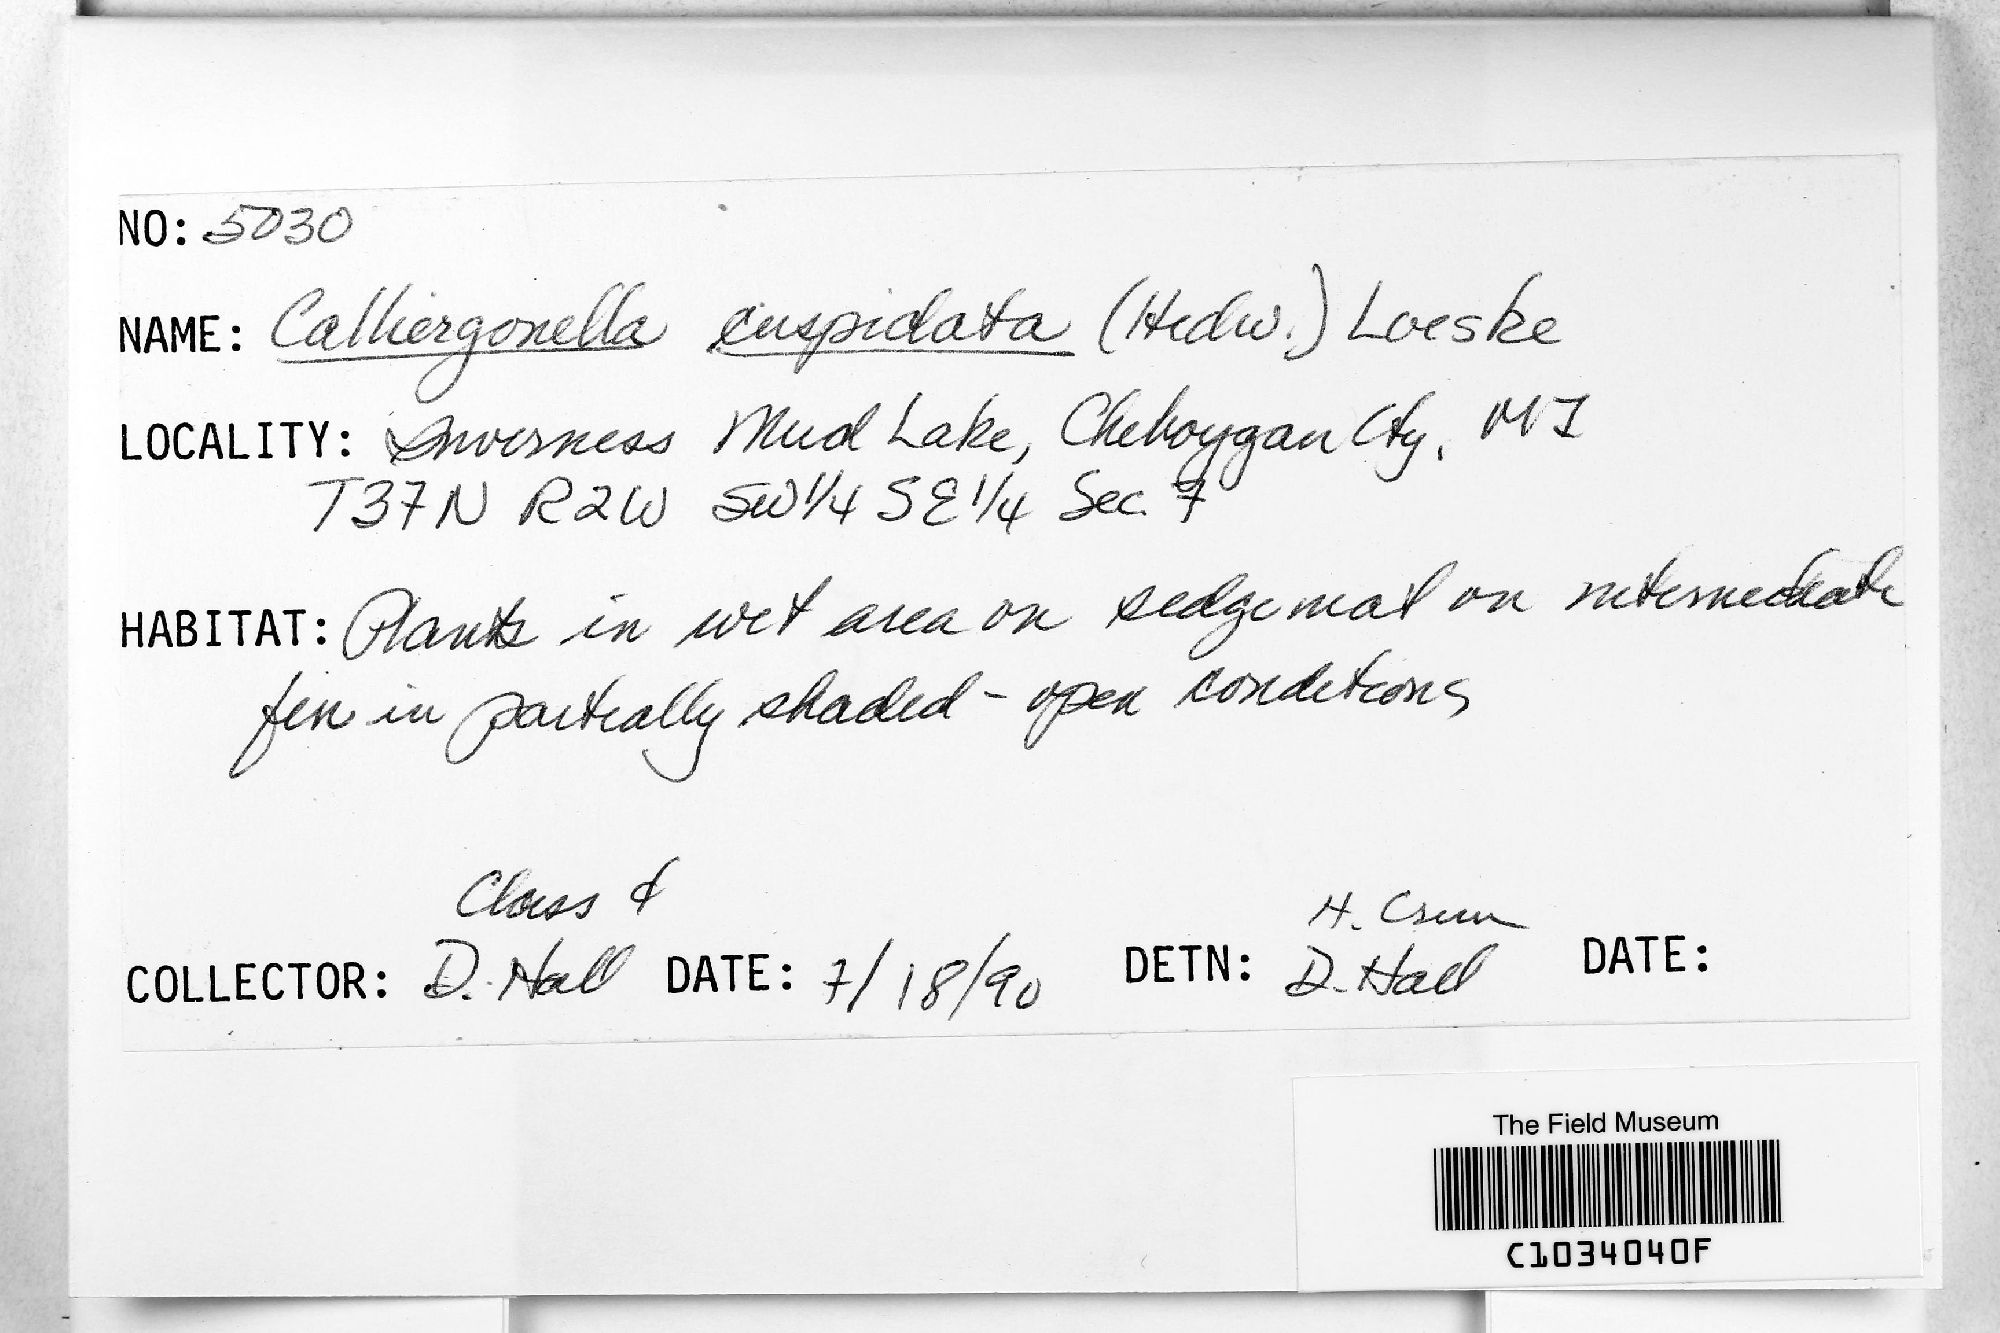 NO: 5030
NAME: Calliergonella cuspidata (Hedw.) Loeske
LOCALITY: Inverness Mud Lake, Cheboygan Cty, MI
T37N R2W SW1/4 SE1/4 Sec. 7
HABITAT: Plants in wet area on sedge mat on intermediate
fen in partially shaded - open conditions
Class &
COLLECTOR: D. Hall DATE: 7/18/90
H. Crum
DETN: D. Hall DATE:
The Field Museum
C1034040F